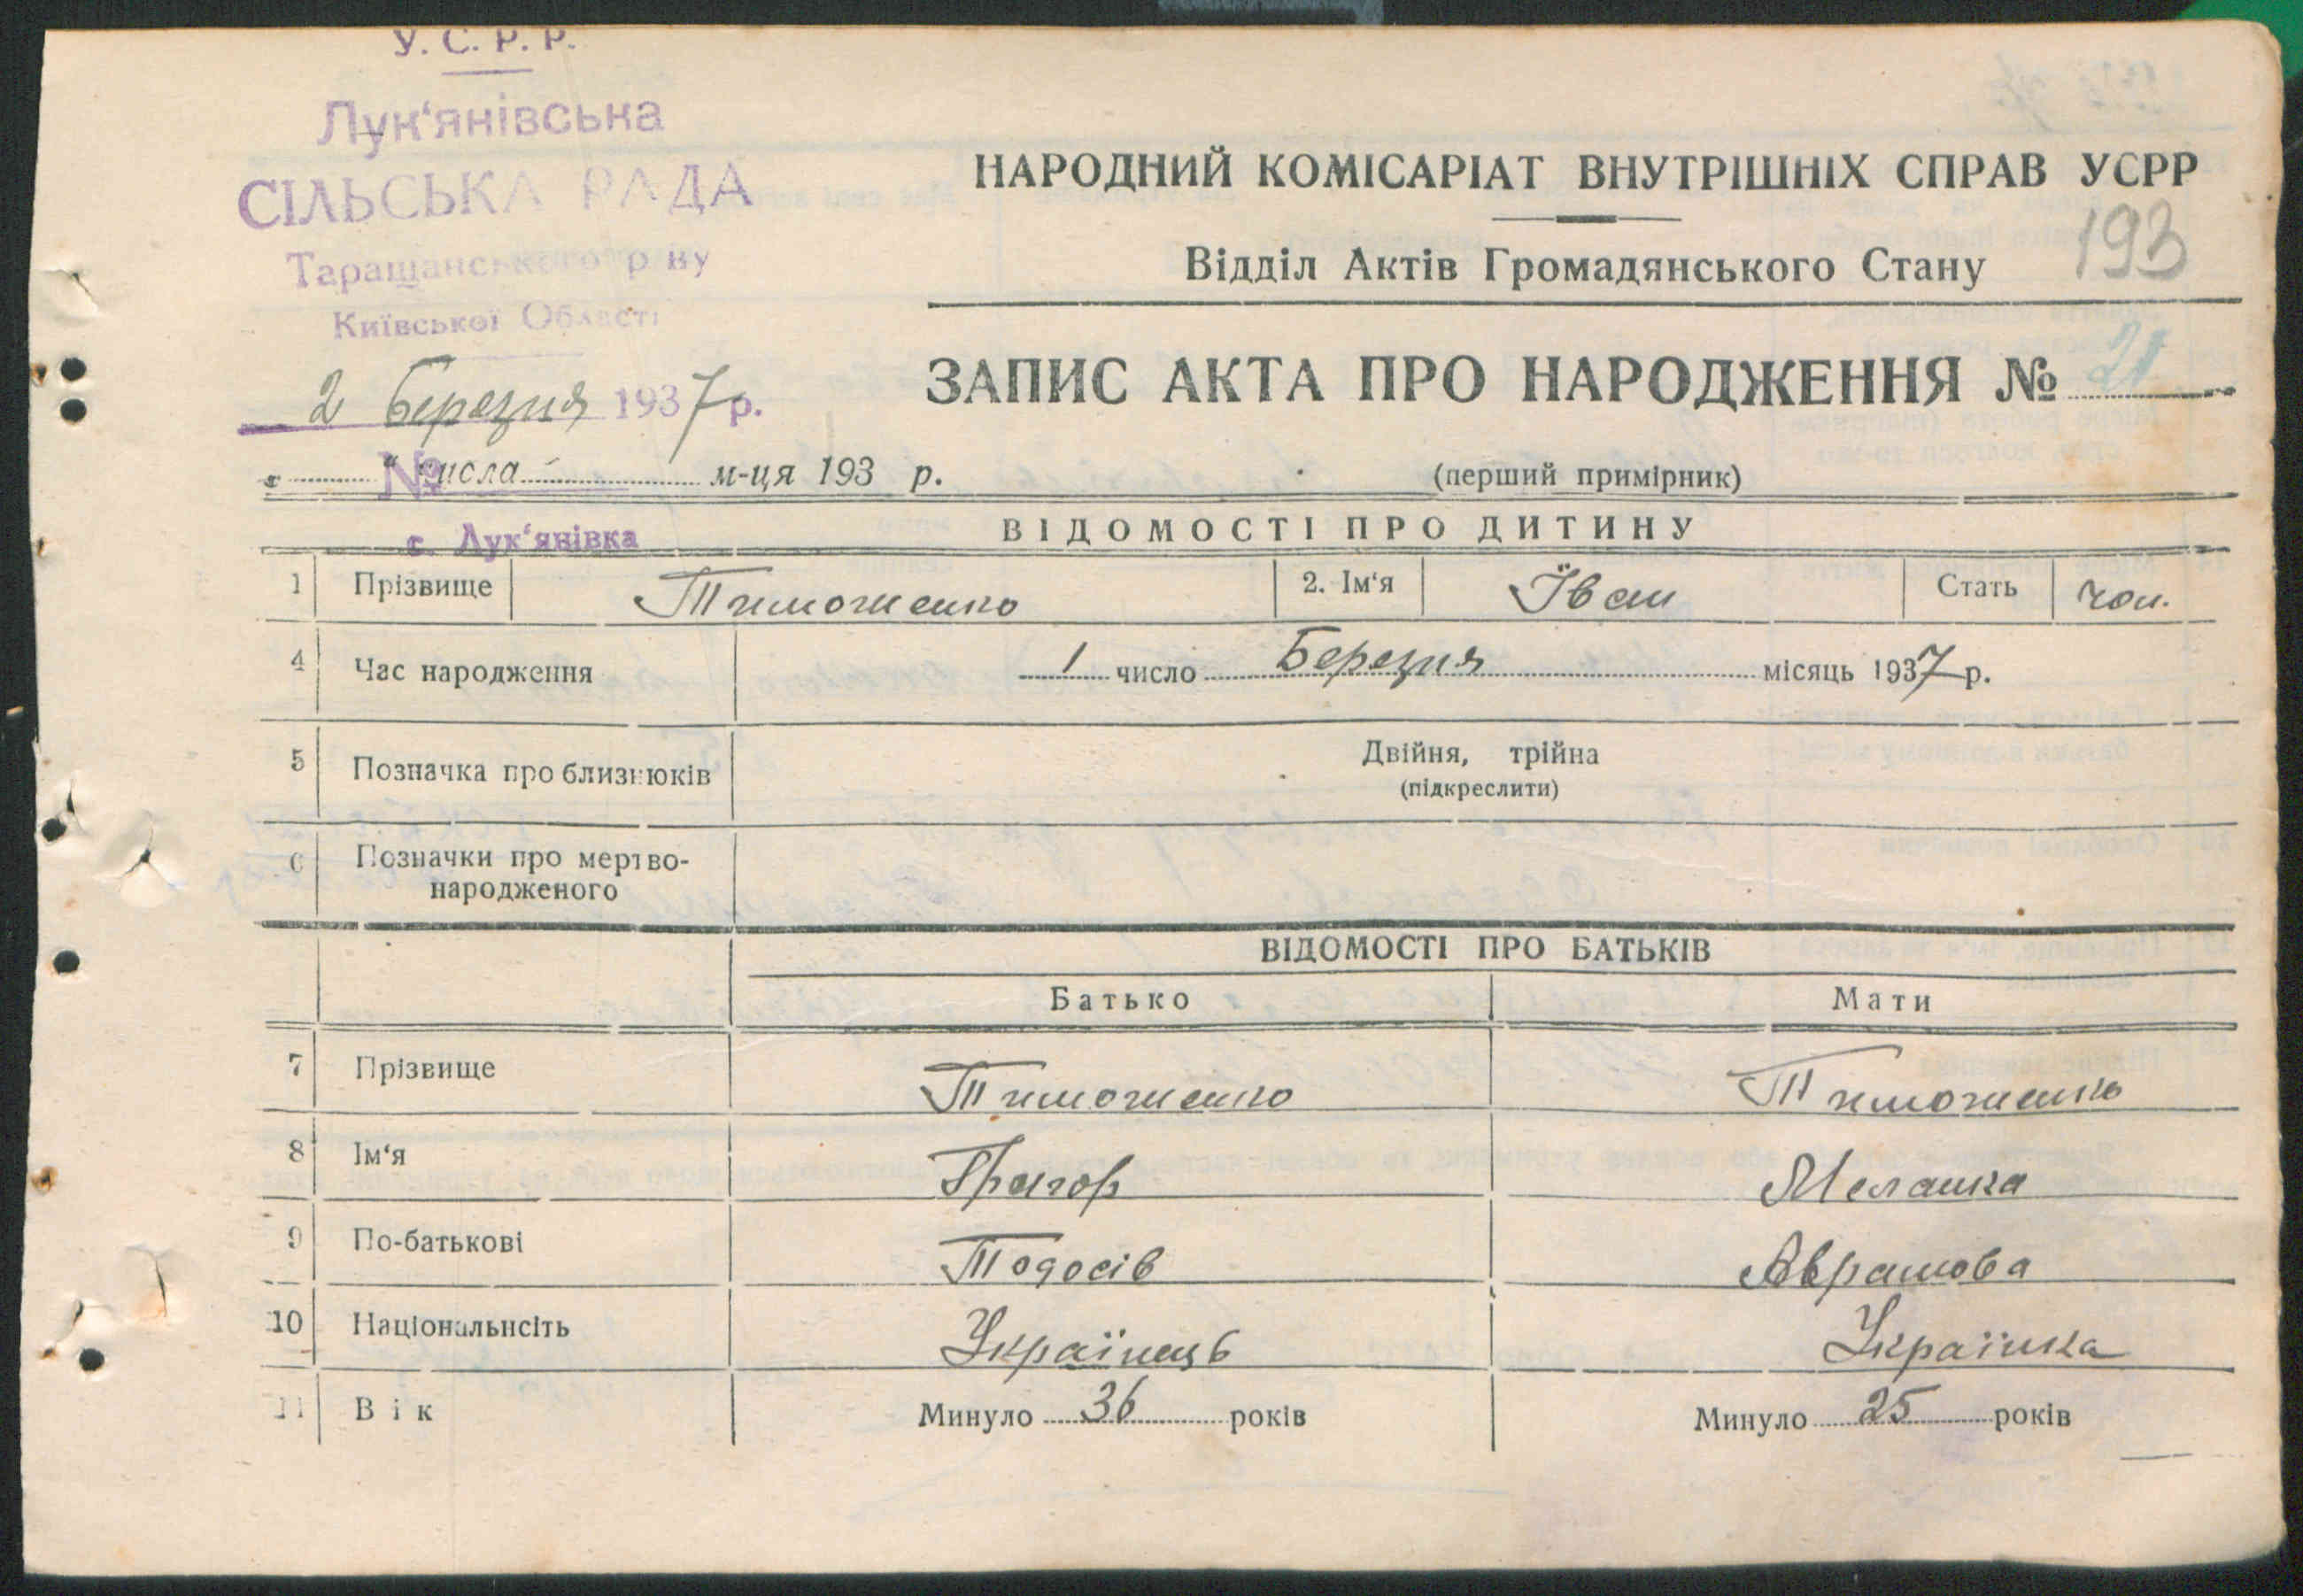 У. С. Р. Р.
Лук‘янівська
СІЛЬСЬКА РАДА
Таращанського р-ну
Київської Області
2 Березня 1937 р.
№
с. Лук‘янівка
НАРОДНИЙ КОМІСАРІАТ ВНУТРІШНІХ СПРАВ УСРР
193
Відділ Актів Громадянського Стану
ЗАПИС АКТА ПРО НАРОДЖЕННЯ № 21
„ “ числа м-ця 193 р.
(перший примірник)
ВІДОМОСТІ ПРО ДИТИНУ
1 Прізвище Тимошенко 2. Ім‘я Їван Стать чол.
4 Час народження 1 число Березня місяць 1937 р.
5 Позначка про близнюків Двійня, трійна
(підкреслити)
6 Позначки про мертво-
народженого
ВІДОМОСТІ ПРО БАТЬКІВ
Батько Мати
7 Прізвище Тимошенко Тимошенко
8 Ім‘я Григор Меланка
9 По-батькові Тодосів Аврамова
10 Національнсіть Українець Українка
11 Вік Минуло 36 років Минуло 25 років